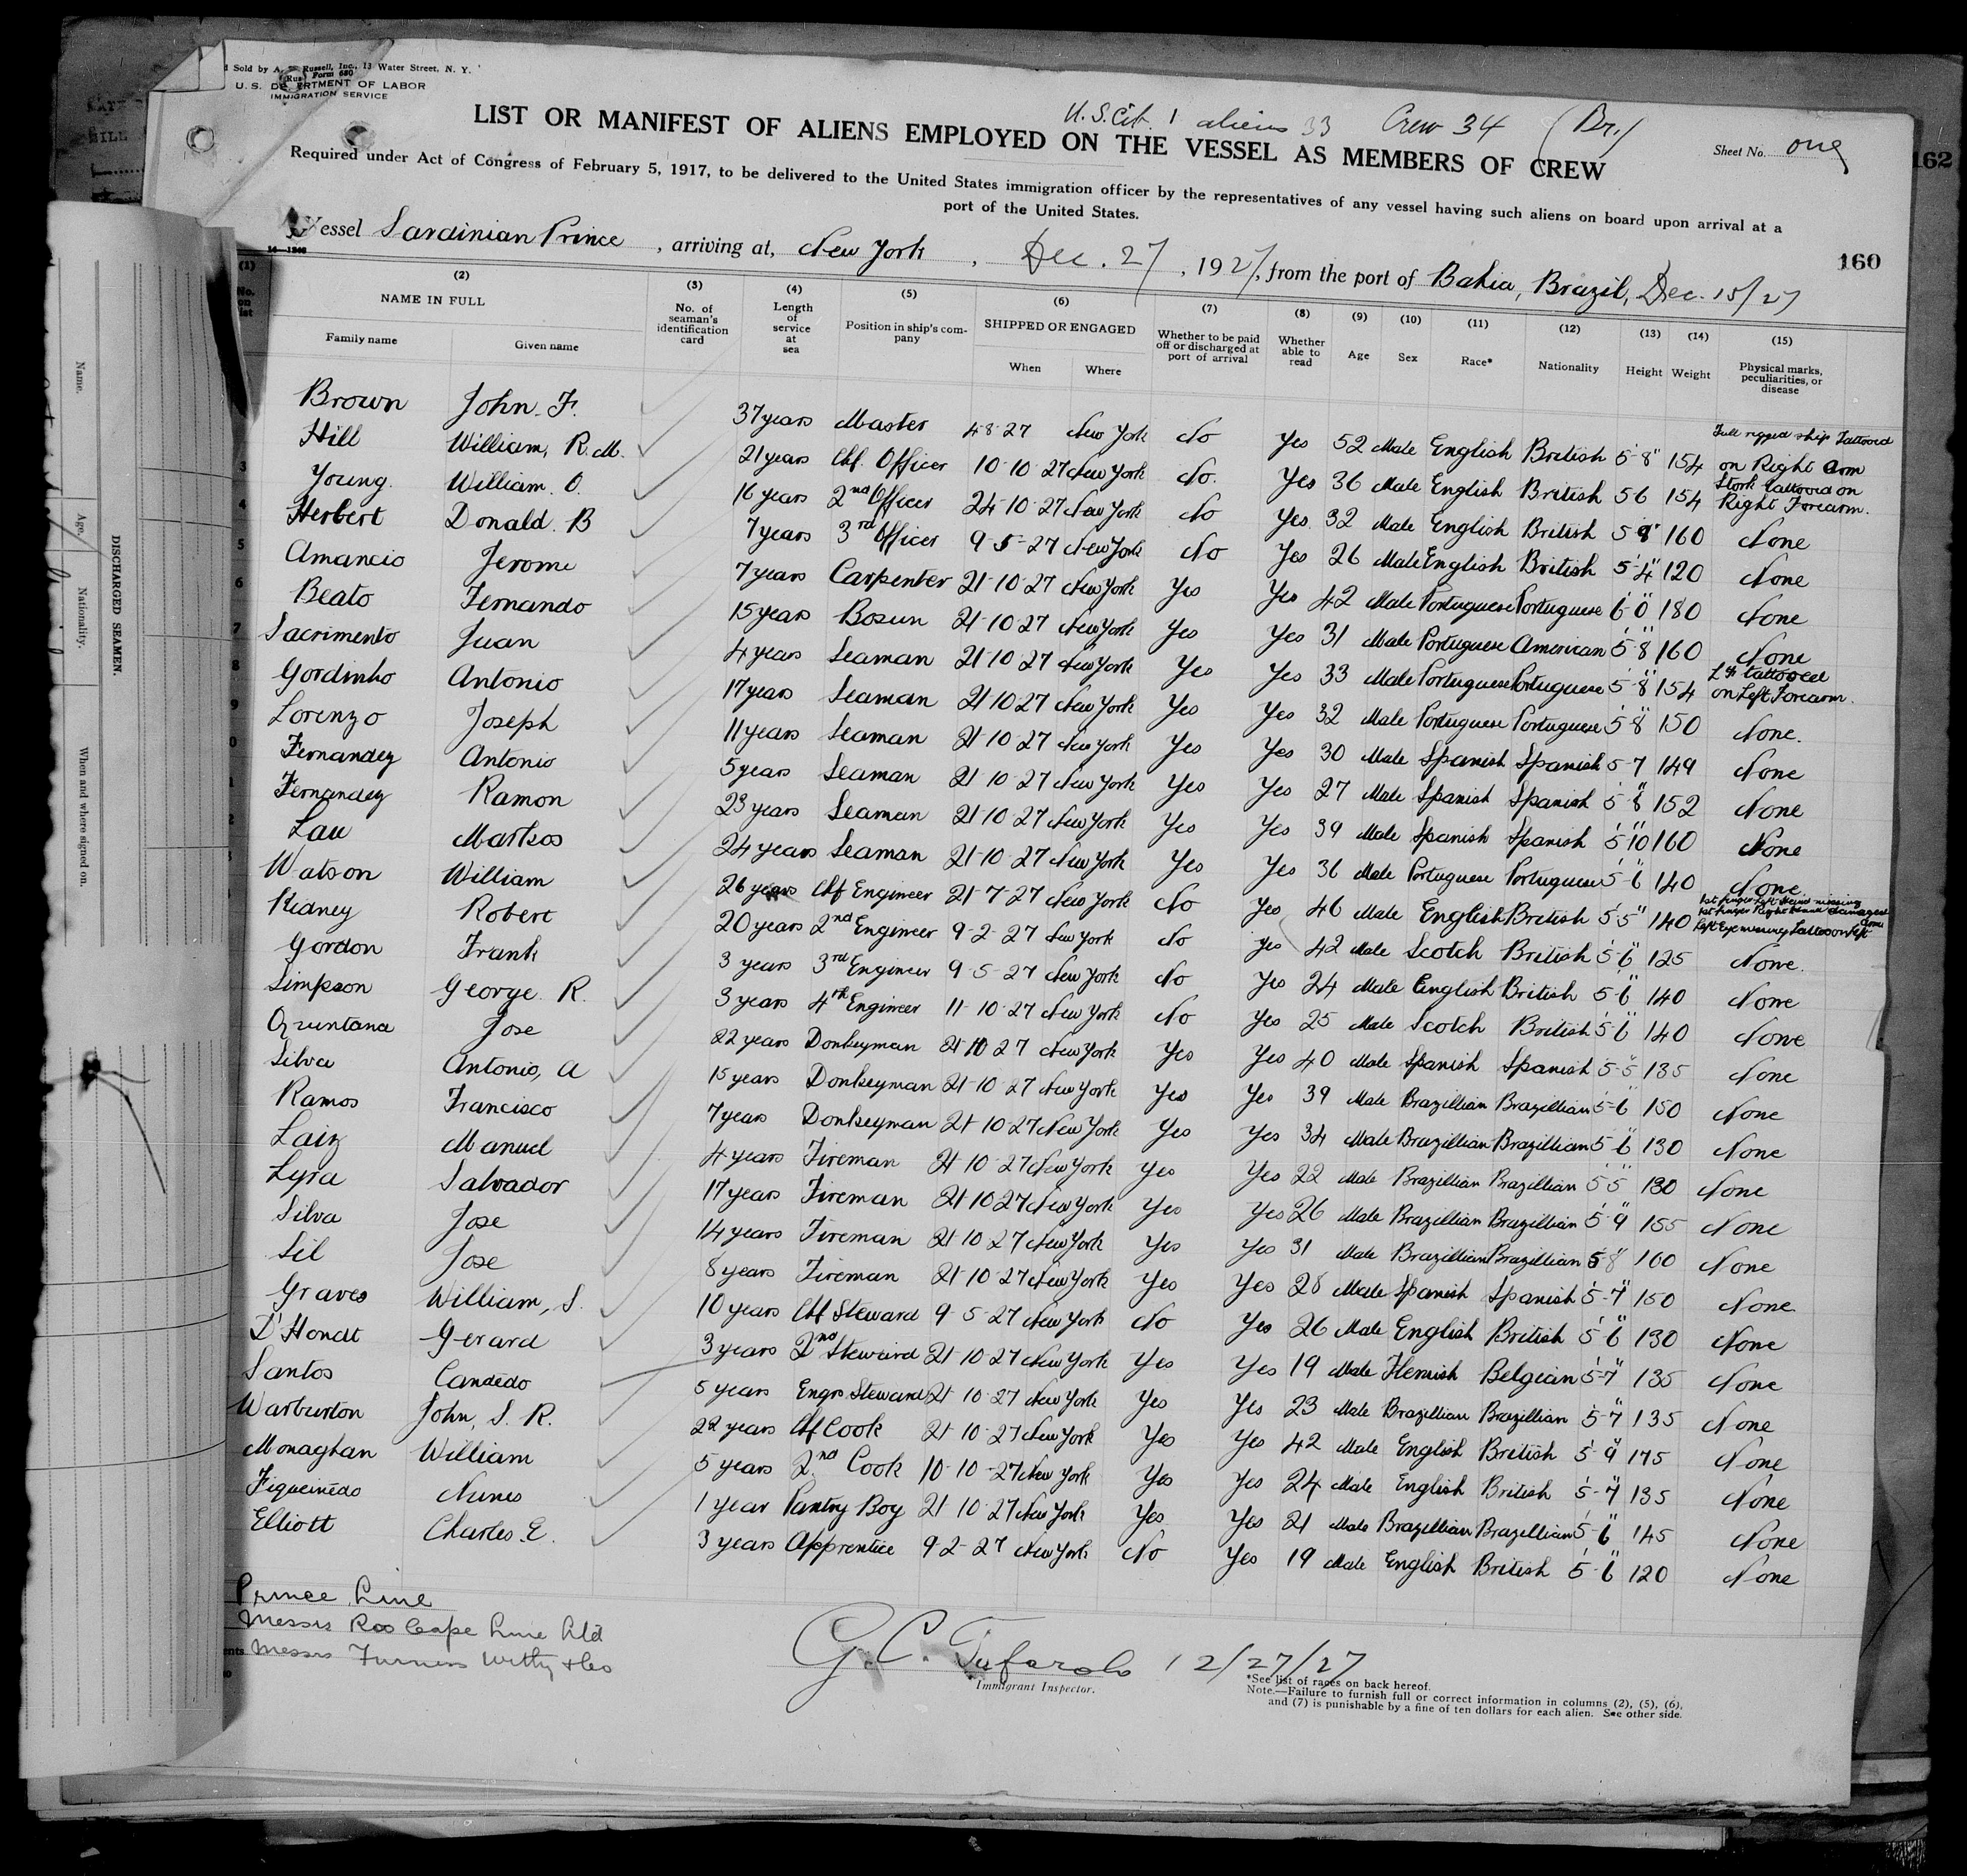 Sold by A. Russell, Inc., 13 Water Street, N. Y.
Form 680
U. S. DEPARTMENT OF LABOR
IMMIGRATION SERVICE
U.S. Cit. 1 aliens 33 Crew 34 (Br.)
LIST OR MANIFEST OF ALIENS EMPLOYED ON THE VESSEL AS MEMBERS OF CREW
Sheet No. one
162
Required under Act of Congress of February 5, 1917, to be delivered to the United States immigration officer by the representatives of any vessel having such aliens on board upon arrival at a
port of the United States.
Vessel Sardinian Prince, arriving at, New York, Dec. 27, 1927, from the port of Bahia, Brazil, Dec. 15/27
160
(1) No. on list
(2) NAME IN FULL Family name Given name
(3) No. of seaman's identification card
(4) Length of service at sea
(5) Position in ship's company
(6) SHIPPED OR ENGAGED When Where
(7) Whether to be paid off or discharged at port of arrival
(8) Whether able to read
(9) Age
(10) Sex
(11) Race*
(12) Nationality
(13) Height
(14) Weight
(15) Physical marks, peculiarities, or disease
Brown John F. 37 years Master 4-8-27 New York No Yes 52 Male English British 5-8" 154 Full rigged ship Tattooed on Right Arm
Hill William, R. M. 21 years Chf. Officer 10-10-27 New York No. Yes 36 Male English British 5 6 154 Stork tattooed on Right Forearm.
3 Young William. O. 16 years 2nd Officer 24-10-27 New York No Yes. 32 Male English British 5 8" 160 None
4 Herbert Donald. B 7 years 3rd Officer 9-5-27 New York No Yes 26 Male English British 5-4" 120 None
5 Amancio Jerome 7 years Carpenter 21-10-27 New York Yes Yes 42 Male Portuguese Portuguese 6-0" 180 None
6 Beato Fernando 15 years Bosun 21-10-27 New York Yes Yes 31 Male Portuguese American 5-8" 160 None
7 Sacrimento Juan 4 years Seaman 21-10-27 New York Yes Yes 33 Male Portuguese Portuguese 5-8" 154 tattooed on Left Forearm.
8 Gordinho Antonio 17 years Seaman 21-10-27 New York Yes Yes 32 Male Portuguese Portuguese 5-8" 150 None.
9 Lorenzo Joseph 11 years Seaman 21-10-27 New York Yes Yes 30 Male Spanish Spanish 5-7 149 None
0 Fernandez Antonio 5 years Seaman 21-10-27 New York Yes Yes 27 Male Spanish Spanish 5-8" 152 None
1 Fernandez Ramon 23 years Seaman 21-10-27 New York Yes Yes 39 Male Spanish Spanish 5-10" 160 None
2 Lau Markos 24 years Seaman 21-10-27 New York Yes Yes 36 Male Portuguese Portuguese 5-6" 140 None.
3 Watson William 26 years Chf Engineer 21-7-27 New York No Yes 46 Male English British 5-5" 140 1st finger Left Hand missing 1st finger Right Hand damaged Left Eye missing Tattoo on Left Arm
Kidney Robert 20 years 2nd Engineer 9-2-27 New York No Yes 42 Male Scotch British 5-6" 125 None.
Gordon Frank 3 years 3rd Engineer 9-5-27 New York No Yes 24 Male English British 5-6" 140 None
Simpson George. R. 3 years 4th Engineer 11-10-27 New York No Yes 25 Male Scotch British 5-6" 140 None
Quintana Jose 22 years Donkeyman 21 10 27 New York Yes Yes 40 Male Spanish Spanish 5-5" 135 None
Silva Antonio, A 15 years Donkeyman 21-10-27 New York Yes Yes 39 Male Brazillian Brazillian 5-6" 150 None
Ramos Francisco 7 years Donkeyman 21-10-27 New York Yes Yes 34 Male Brazillian Brazillian 5-6" 130 None
Laiz Manuel 4 years Fireman 21 10-27 New York Yes Yes 22 Male Brazillian Brazillian 5-5" 130 None
Lyra Salvador 17 years Fireman 21 10 27 New York Yes Yes 26 Male Brazillian Brazillian 5-9" 155 None
Silva Jose 14 years Fireman 21 10 27 New York Yes Yes 31 Male Brazillian Brazillian 5-8" 160 None
Sil Jose 8 years Fireman 21-10-27 New York Yes Yes 28 Male Spanish Spanish 5-7" 150 None
Graves William, S. 10 years Chf Steward 9-5-27 New York No Yes 26 Male English British 5-6" 130 None
D'Hondt Gerard 3 years 2nd Steward 21-10-27 New York Yes Yes 19 Male Flemish Belgian 5-7" 135 None
Santos Candedo 5 years Engrs Steward 21-10-27 New York Yes Yes 23 Male Brazillian Brazillian 5-7" 135 None
Warburton John, S. R. 22 years Chf Cook 21-10-27 New York Yes Yes 42 Male English British 5-9" 175 None
Monaghan William 5 years 2nd Cook 10-10-27 New York Yes Yes 24 Male English British 5-7" 135 None
Figueinedo Nunes 1 year Pantry Boy 21 10-27 New York Yes Yes 21 Male Brazillian Brazillian 5-6" 145 None
Elliott Charles. E. 3 years Apprentice 9-2-27 New York No Yes 19 Male English British 5-6" 120 None
Prince Line
Messrs Cape Line Ltd
Messrs Furness Withy & Co
G. C. Tufarolo 12/27/27
Immigrant Inspector.
*See list of races on back hereof.
Note.—Failure to furnish full or correct information in columns (2), (5), (6),
and (7) is punishable by a fine of ten dollars for each alien. See other side.
DISCHARGED SEAMEN.
Name.
Age.
Nationality.
When and where signed on.